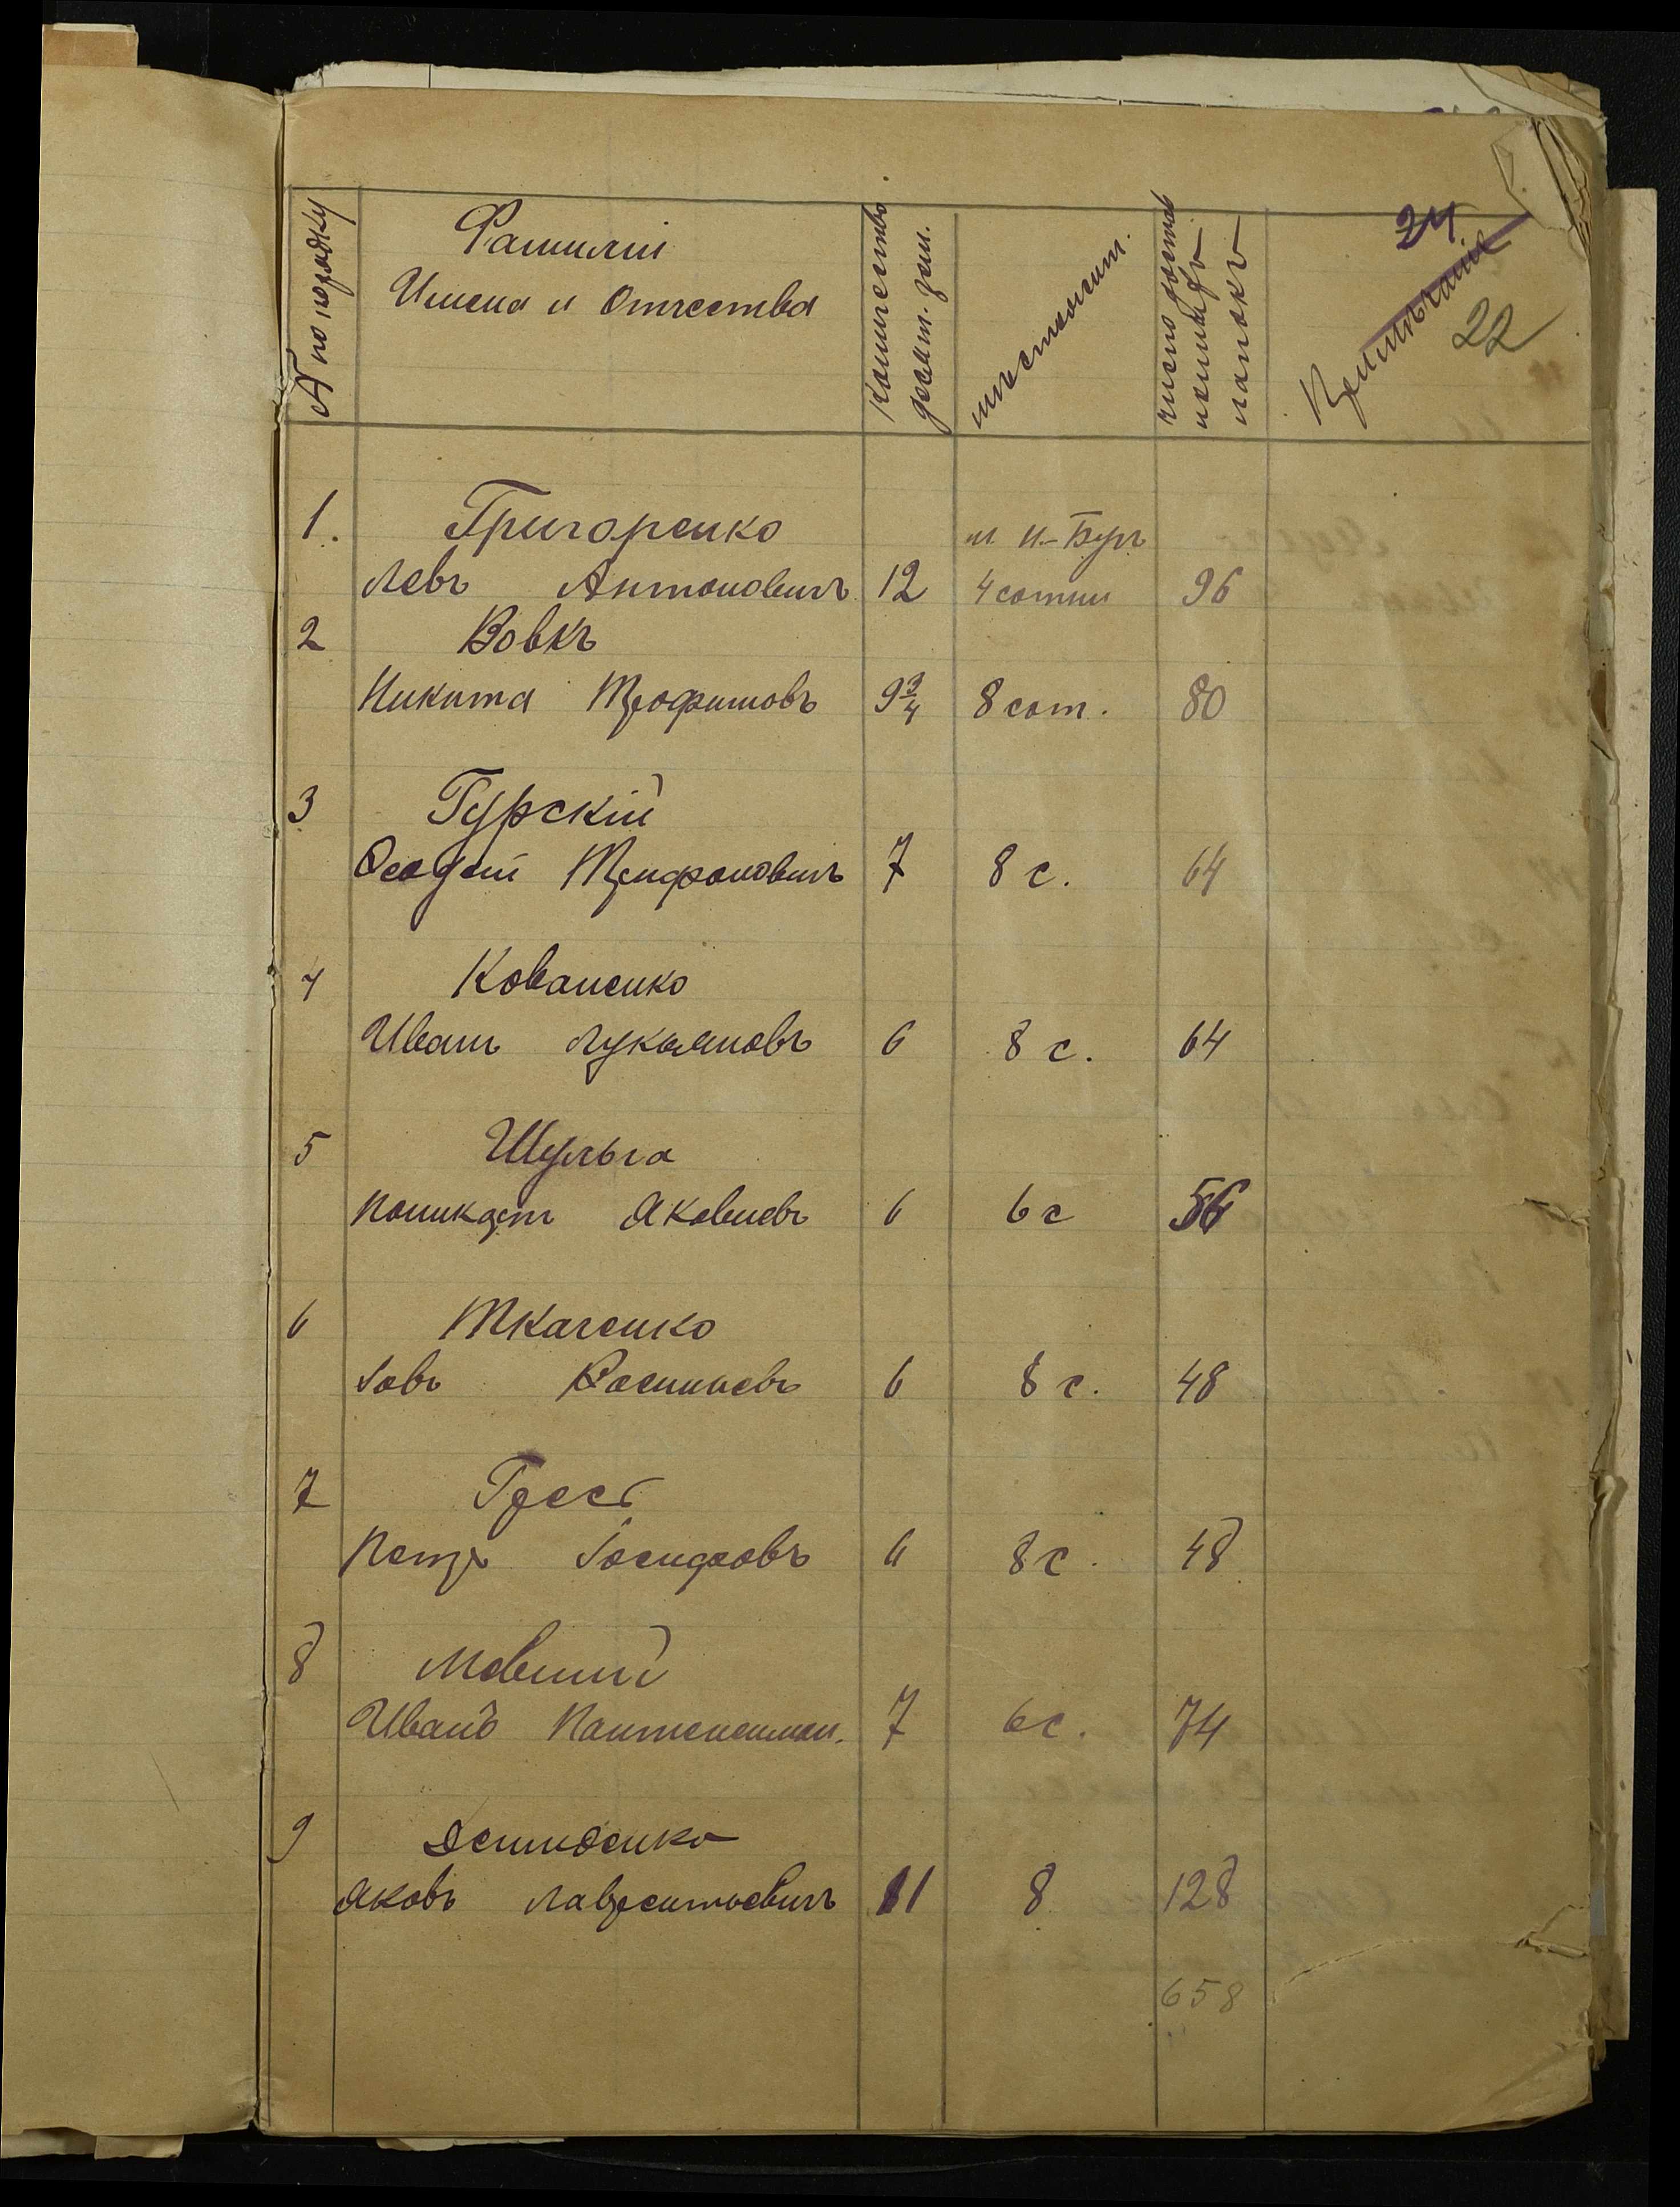 № по порядку
Фамилія
Имена и Отчества
Количество
десят. зем.
мѣстожит.
число достав
лапокъ
24
22
1. Григоренко м. Н-Бугъ
Левъ Антоновичъ 12 4 сотни 96
2 Вовкъ
Никита Трофимовъ 9 3/4 8 сот. 80
3 Гурскій
Феодосій Трифоновичъ 7 8 с. 64
4 Коваленко
Иванъ Лукьяновъ 6 8 с. 64
5 Шульга
Поликарпъ Яковлевъ 6 6 с 56
6 Ткаченко
Іовъ Васильевъ 6 8 с. 48
7 Гресь
Петръ Іосифовъ 6 8 с. 48
8
Иванъ Пантелеимон. 7 6 с. 74
9 Демиденко
Яковъ Лаврентьевичъ 11 8 128
658